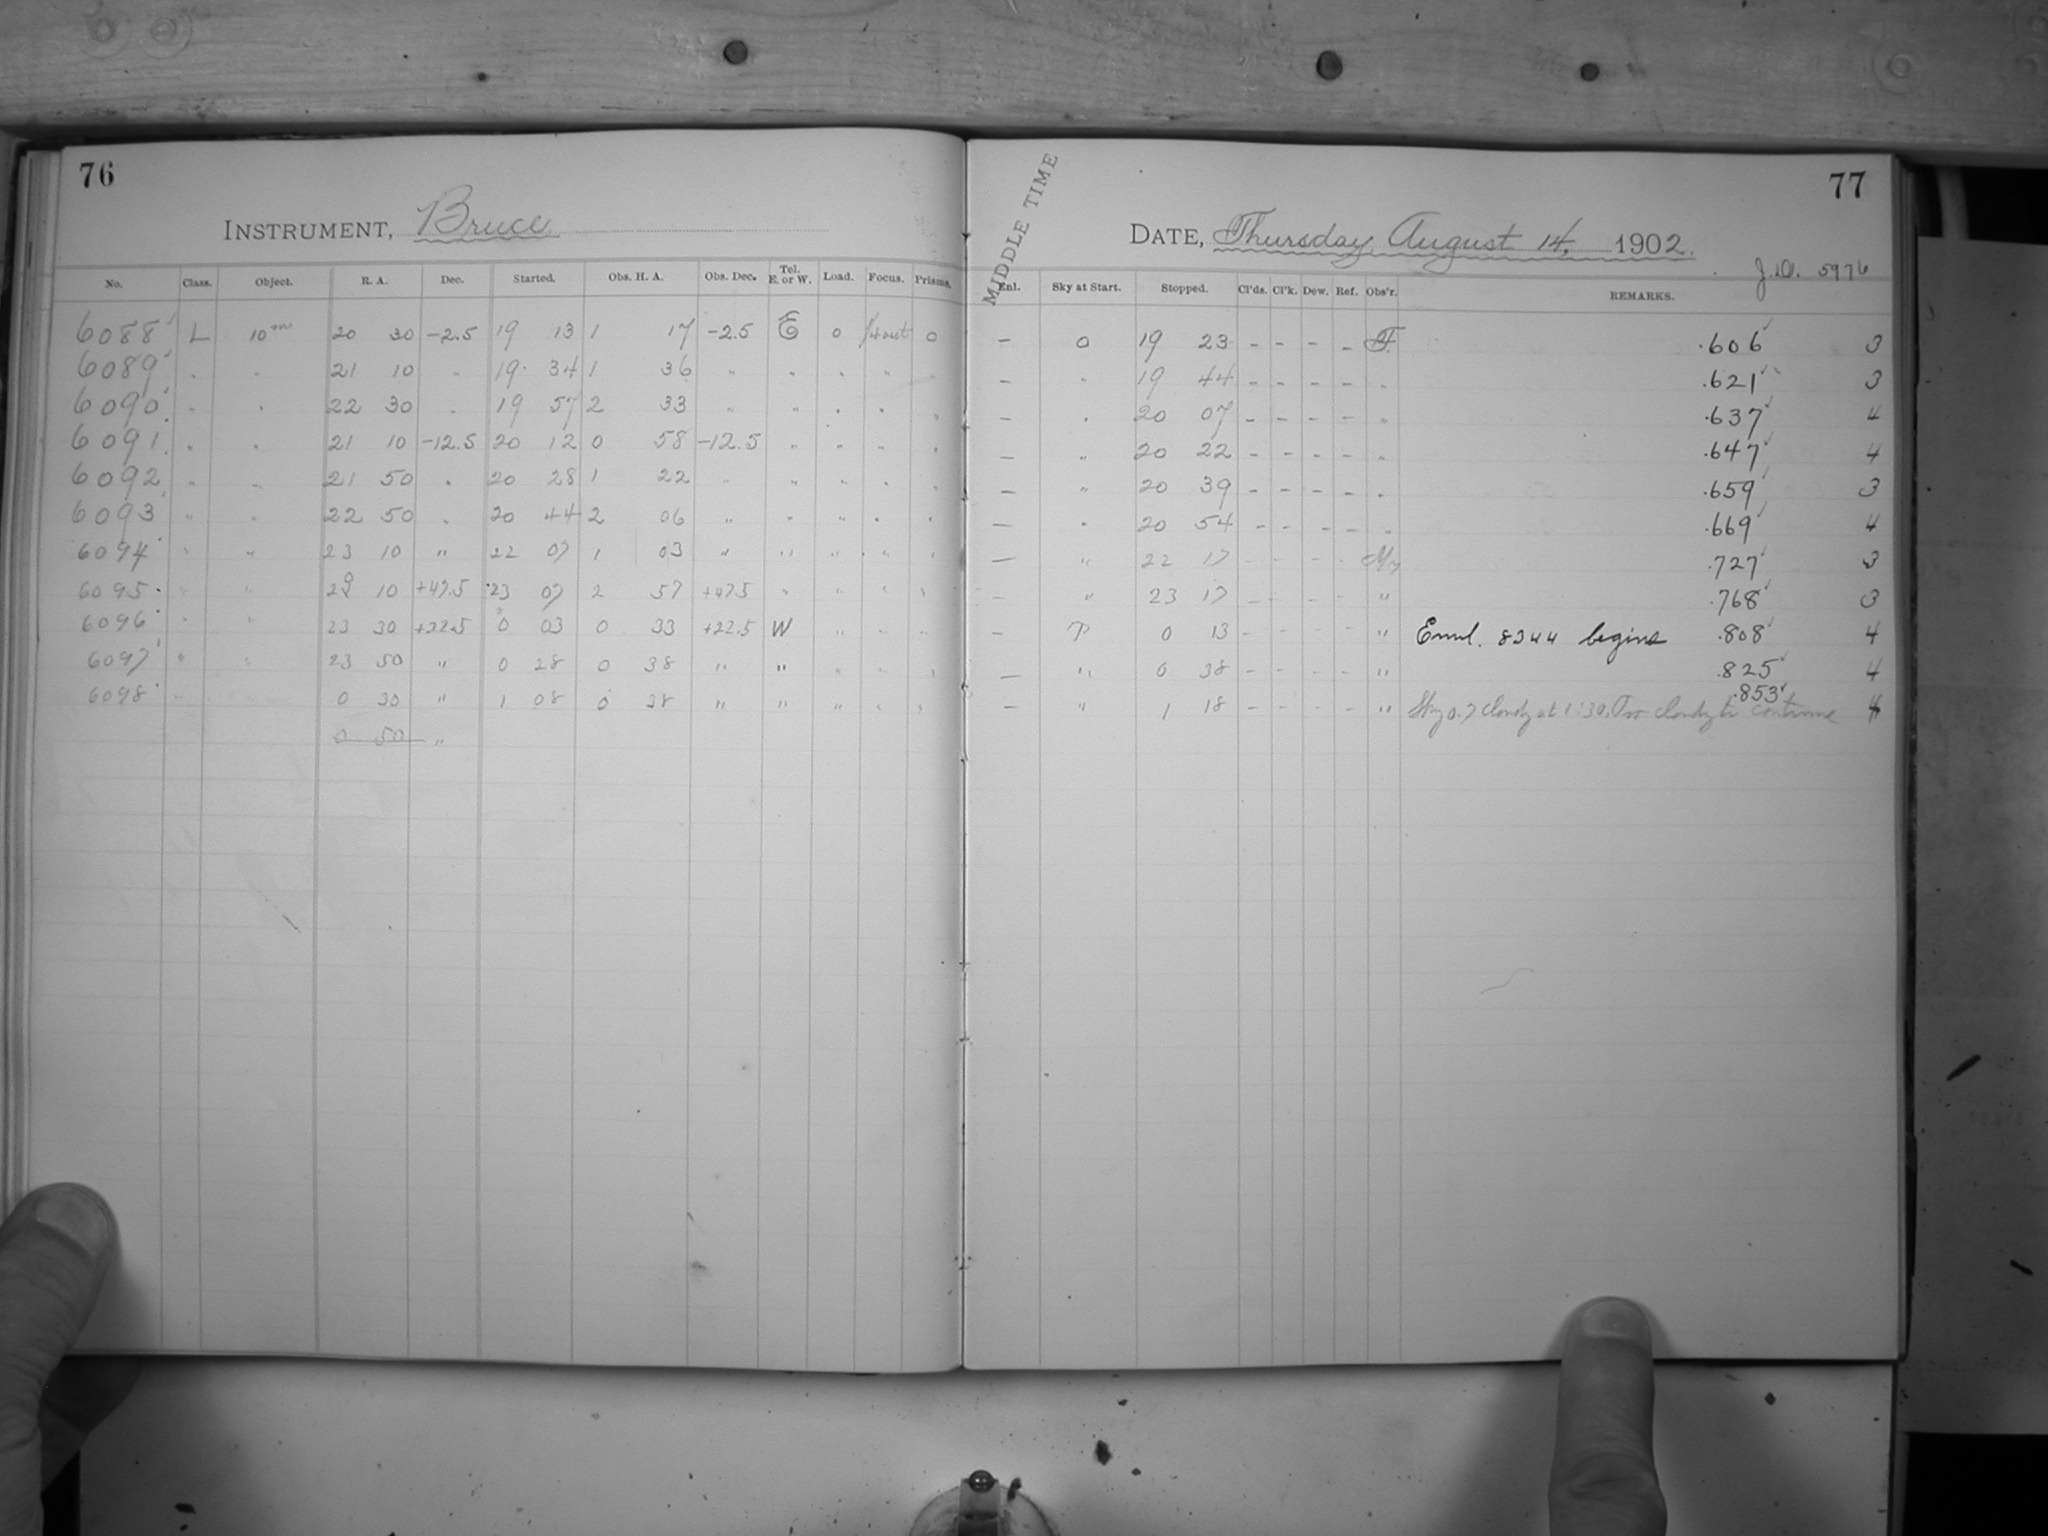 76
INSTRUMENT, Bruce
No. Class. Object. R. A. Dec. Started. Obs. H. A. Obs. Dec. Tel. E. or W. Load. Focus. Prisms.
6088 L 10m 20 30 -2.5 19 13 1 17 -2.5 E 0 out 0
6089 " " 21 10 " 19 34 1 36 " " " " "
6090 " " 22 30 " 19 57 2 33 " " " " "
6091 " " 21 10 -12.5 20 12 0 58 -12.5 " " " "
6092 " " 21 50 " 20 28 1 22 " " " " "
6093 " " 22 50 " 20 44 2 06 " " " " "
6094 " " 23 10 " 22 07 1 03 " " " " "
6095 " " 10 +47.5 23 07 2 57 +47.5 " " " "
6096 " " 23 30 +22.5 0 03 0 33 +22.5 W " " "
6097 " " 23 50 " 0 28 0 38 " " " " "
6098 " " 0 30 " 1 08 0 38 " " " " "
0 50 "
77
MIDDLE TIME
DATE, Thursday, August 14, 1902.
J.D. 5976
Enl. Sky at Start. Stopped. Cl'ds. Cl'k. Dew. Ref. Obs'r. REMARKS.
- 0 19 23 - - - - F. .606 3
- " 19 44 - - - - " .621 3
- " 20 07 - - - - " .637 4
- " 20 22 - - - - " .647 4
- " 20 39 - - - - " .659 3
- " 20 54 - - - - " .669 4
- " 22 17 - - - - .727 3
- " 23 17 - - - - " .768 3
- 0 13 - - - - " Emul. 8344 begins .808 4
- " 0 38 - - - - " .825 4
- " 1 18 - - - - " Sky 0.7 cloudy at 1:30. Too cloudy to continue .853 4